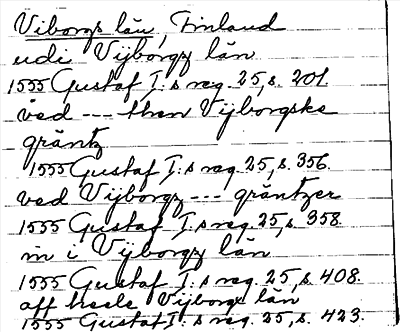 Viborgs län, Finland
udi Vijborgz län
1555 Gustaf I:s reg. 25, s. 201.
ved --- then Vijborgske
gräntz
1555 Gustaf I:s reg. 25, s. 356.
ved Vijborgz --- gräntzer
1555 Gustaf I:s reg. 25, s. 358.
in i Vijborgz län
1555 Gustaf I:s reg. 25, s. 408.
aff heele Vijborgs län
1555 Gustaf I:s reg. 25, s. 423.